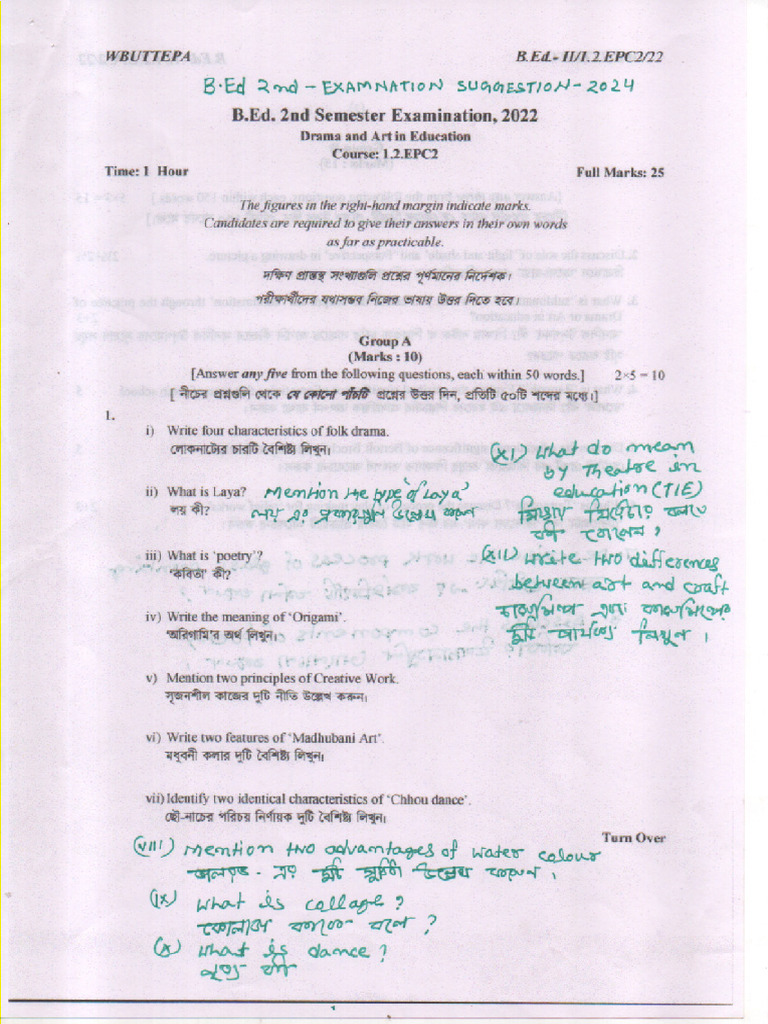 WBUTTEPA B.Ed.- II/1.2.EPC2/22
B.Ed 2nd - EXAMNATION SUGGESTION - 2024
B.Ed. 2nd Semester Examination, 2022
Drama and Art in Education
Course: 1.2.EPC2
Time: 1 Hour Full Marks: 25
The figures in the right-hand margin indicate marks.
Candidates are required to give their answers in their own words
as far as practicable.
দক্ষিণ প্রান্তস্থ সংখ্যাগুলি প্রশ্নের পূর্ণমানের নির্দেশক।
পরীক্ষার্থীদের যথাসম্ভব নিজের ভাষায় উত্তর দিতে হবে।
Group A
(Marks : 10)
[Answer any five from the following questions, each within 50 words.] 2×5 = 10
[ নীচের প্রশ্নগুলি থেকে যে কোনো পাঁচটি প্রশ্নের উত্তর দিন, প্রতিটি ৫০টি শব্দের মধ্যে।]
1.
i) Write four characteristics of folk drama.
লোকনাট্যের চারটি বৈশিষ্ট্য লিখুন।
ii) What is Laya? Mention the type of 'Laya'
লয় কী? লয় এর প্রকারগুলি উল্লেখ করুন
iii) What is 'poetry'?
'কবিতা' কী?
iv) Write the meaning of 'Origami'.
'অরিগামি'র অর্থ লিখুন।
v) Mention two principles of Creative Work.
সৃজনশীল কাজের দুটি নীতি উল্লেখ করুন।
vi) Write two features of 'Madhubani Art'.
মধুবনী কলার দুটি বৈশিষ্ট্য লিখুন।
vii) Identify two identical characteristics of 'Chhou dance'.
ছৌ-নাচের পরিচয় নির্ণায়ক দুটি বৈশিষ্ট্য লিখুন।
Turn Over
(viii) Mention two advantages of water colour
জলরঙ - এর দুটি সুবিধা উল্লেখ করুন।
(ix) What is collage?
কোলাজ কাকে বলে?
(x) What is dance?
নৃত্য কী
(XI) What do mean
by Theatre in
education (TIE)
শিক্ষায় থিয়েটার বলতে
কী বোঝেন?
(XII) Write two differences
between art and craft
চারুশিল্প এবং কারুশিল্পের
দুটি পার্থক্য লিখুন।